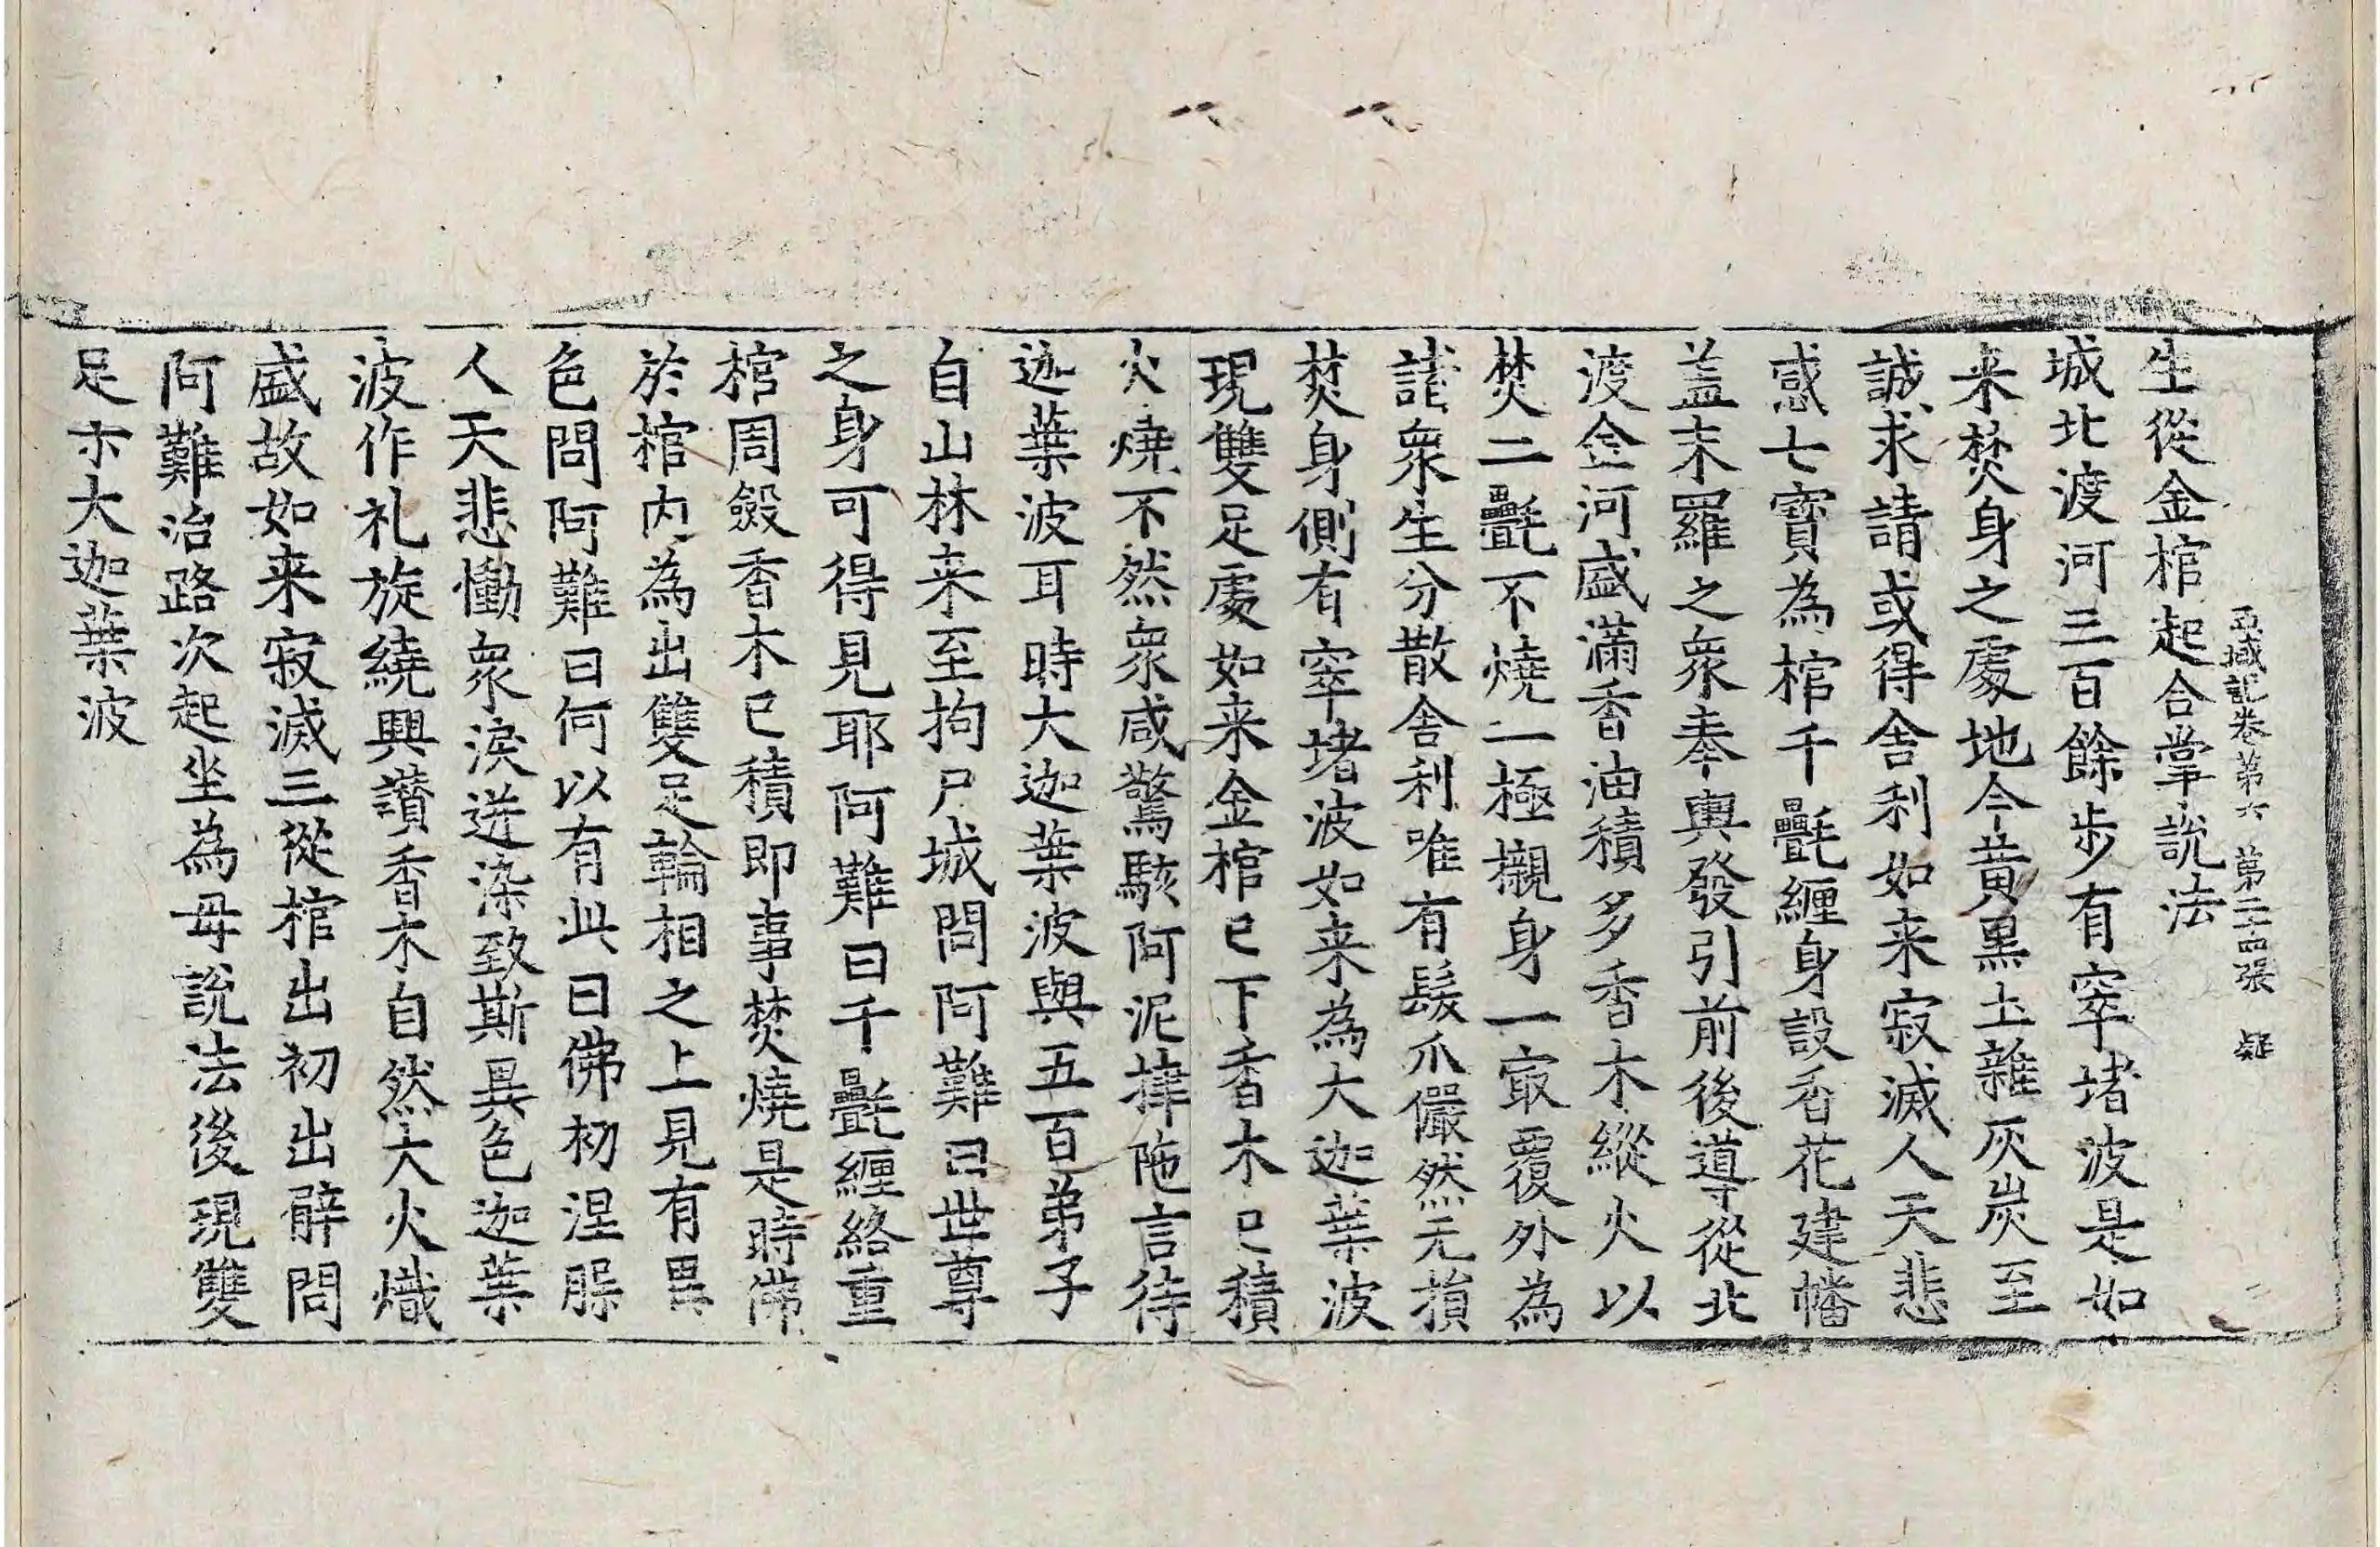 西域記卷第六　第二十四張　疑
生從金棺起合掌說法
城北渡河三百餘步有窣堵波是如
来焚身之處地今黃黑土雜灰炭至
誠求請或得舍利如来寂滅人天悲
感七寶為棺千㲲纏身設香花建幡
蓋末羅之衆奉輿發引前後導從北
渡金河盛滿香油積多香木縱火以
焚二㲲不燒一極襯身一冣覆外為
諸衆生分散舍利唯有髮爪儼然无損
焚身側有窣堵波如来為大迦葉波
現雙足處如来金棺已下香木已積
火燒不然衆咸驚駭阿泥㨖陁言待
迦葉波耳時大迦葉波與五百弟子
自山林来至拘尸城問阿難曰世尊
之身可得見耶阿難曰千㲲纏絡重
棺周斂香木已積即事焚燒是時佛
於棺内為出雙足輪相之上見有異
色問阿難曰何以有此曰佛初涅脲
人天悲慟衆淚迸染致斯異色迦葉
波作礼旋繞興讚香木自然大火熾
盛故如来寂滅三從棺出初出臂問
阿難治路次起坐為母說法後現雙
足示大迦葉波